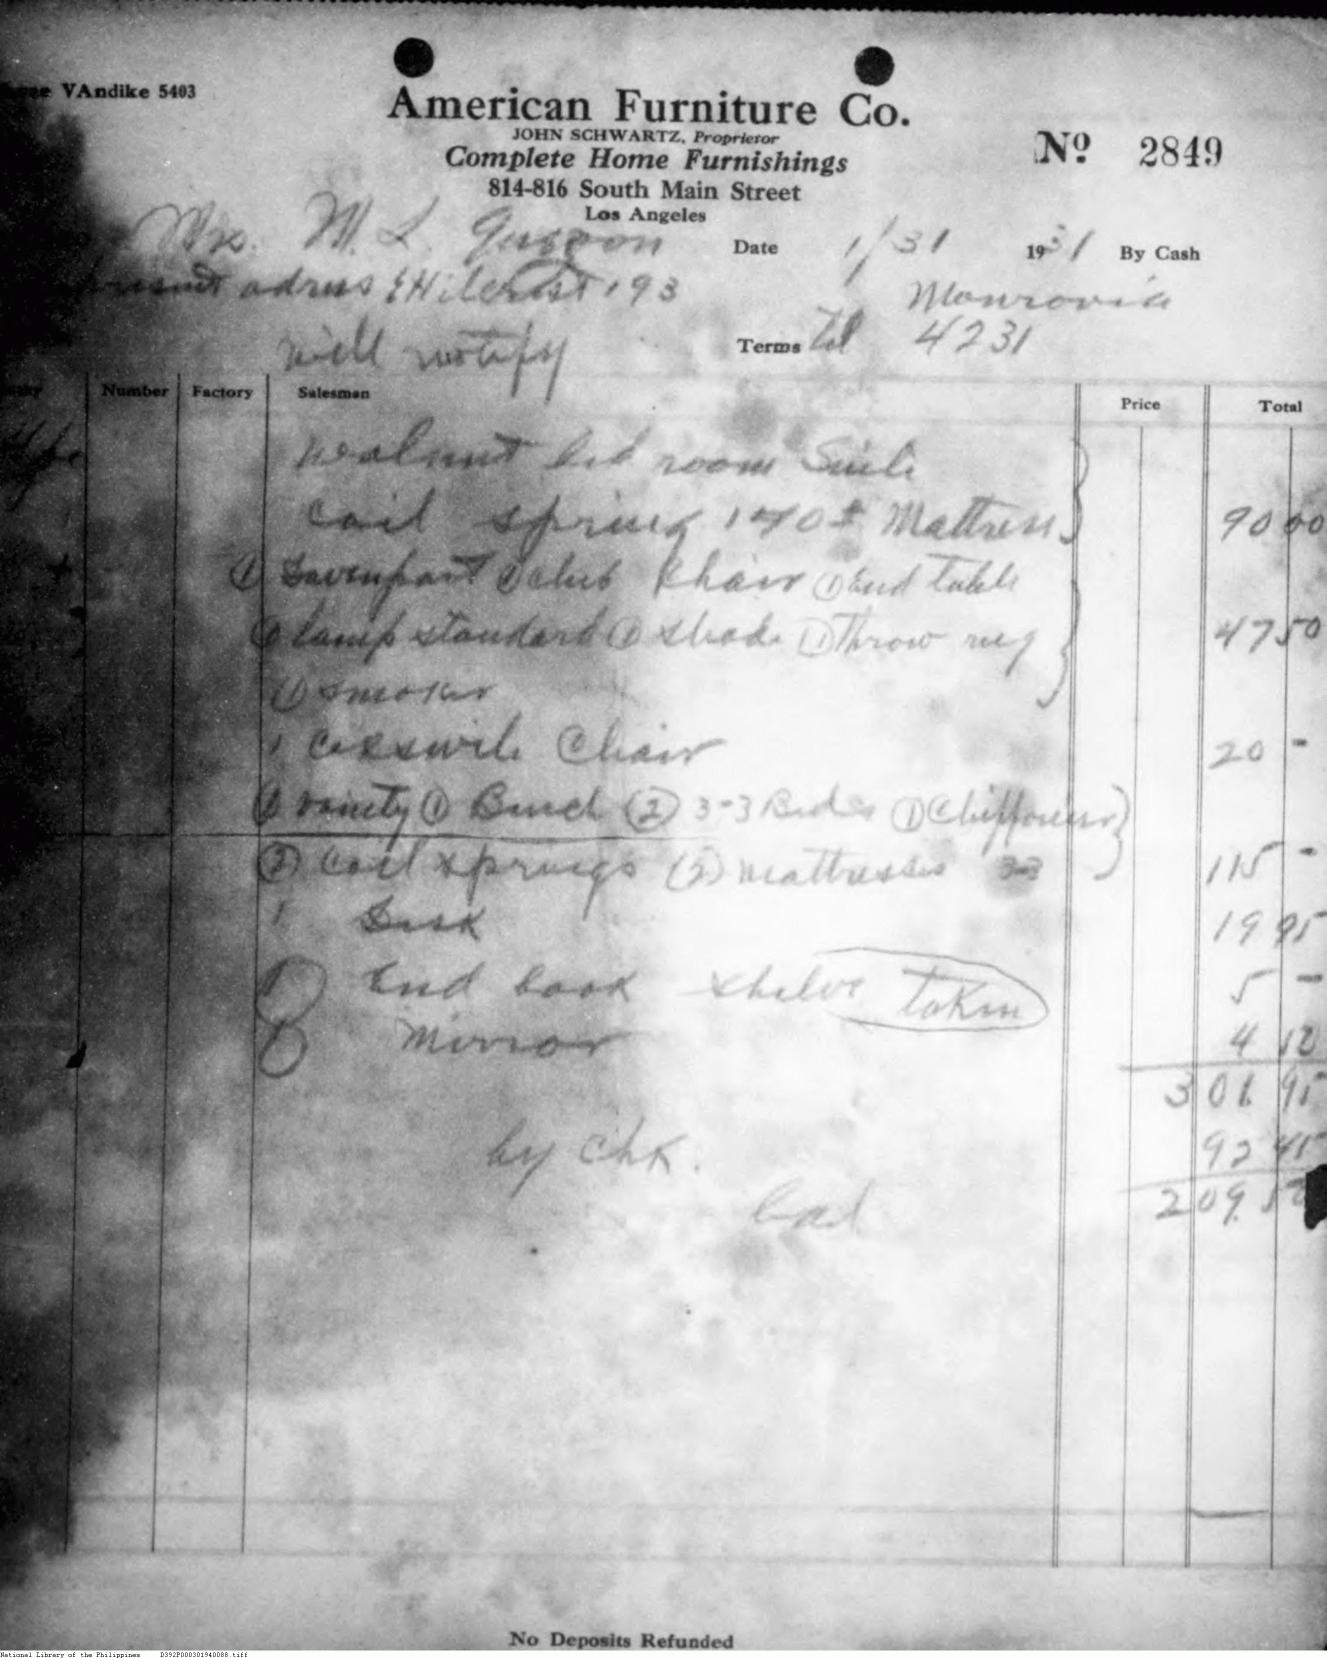 VAndike 5403
American Furniture Co.
JOHN SCHWARTZ, Proprietor
Nº 2849
Complete Home Furnishings
814-816 South Main Street
Los Angeles
Mrs. M. L.
Date 1/31 1931 By Cash
present adress 193 Monrovia
will notify Terms tel 4231
Number Factory Salesman Price Total
Walnut bed room Suite
Coil spring Mattress 90 00
① Davenport ① club Chair ① End table
① lamp standard ① shade ① Throw rug 47 50
① smoker
1 Chair 20 -
① vanity ① Bench ② 3-3 Beds ① Chifforier
② coil springs mattresses 3-3 115 -
1 Desk 19 95
1 End book shelve taken 5 -
Mirror 4
301. 95
by Chk. 92 45
bal 209. 50
No Deposits Refunded
National Library of the Philippines D392P000301940088.tiff